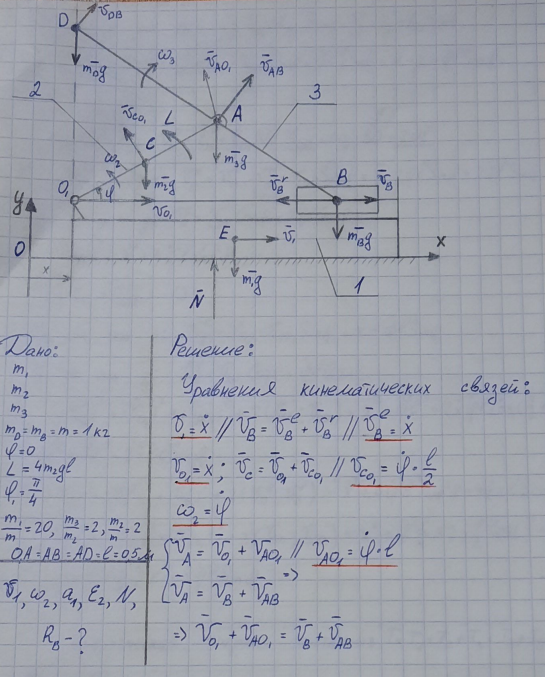 D
v̄_DB
m̄_Dg
ω₃
v̄_AO₁
v̄_AB
2
v̄_CO₁
L
A
3
C
m̄₃g
ω₂
m̄₂g
O₁
φ
v_O₁
v̄_B^r
B
v̄_B
y
E
v̄₁
m̄_Bg
x
O
x
m̄₁g
N̄
1
Дано:
m₁
m₂
m₃
m_D = m_B = m = 1 кг
φ = 0
L = 4m₂gl
φ₁ = π/4
m₁/m = 20, m₃/m₂ = 2, m₂/m = 2
OA = AB = AD = l = 0,5 м
v̄₁, ω₂, a₁, ε₂, N,
R_B - ?
Решение:
Уравнения кинематических связей:
v₁ = ẋ // v̄_B = v̄_B^e + v̄_B^r // v̄_B^e = ẋ
v_O₁ = ẋ; v̄_C = v̄_O₁ + v̄_CO₁ // v_CO₁ = φ̇ · l/2
ω₂ = φ̇
{ v̄_A = v̄_O₁ + v̄_AO₁ // v_AO₁ = φ̇ · l
v̄_A = v̄_B + v̄_AB =>
=> v̄_O₁ + v̄_AO₁ = v̄_B + v̄_AB